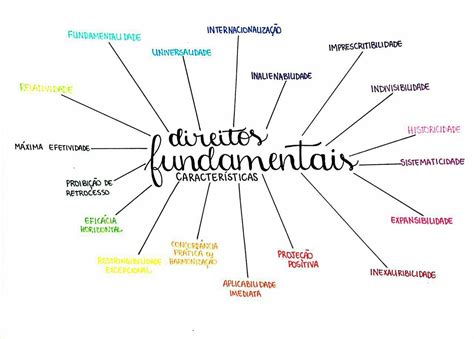 INTERNACIONALIZAÇÃO
FUNDAMENTALIDADE
UNIVERSALIDADE
IMPRESCRITIBILIDADE
INALIENABILIDADE
RELATIVIDADE
INDIVISIBILIDADE
HISTORICIDADE
direitos
MÁXIMA EFETIVIDADE
fundamentais
SISTEMATICIDADE
CARACTERÍSTICAS
PROIBIÇÃO DE
RETROCESSO
EFICÁCIA
HORIZONTAL
EXPANSIBILIDADE
CONCORDÂNCIA
PRÁTICA OU
HARMONIZAÇÃO
PROJEÇÃO
POSITIVA
RESTRINGIBILIDADE
EXCEPCIONAL
INEXAURIBILIDADE
APLICABILIDADE
IMEDIATA